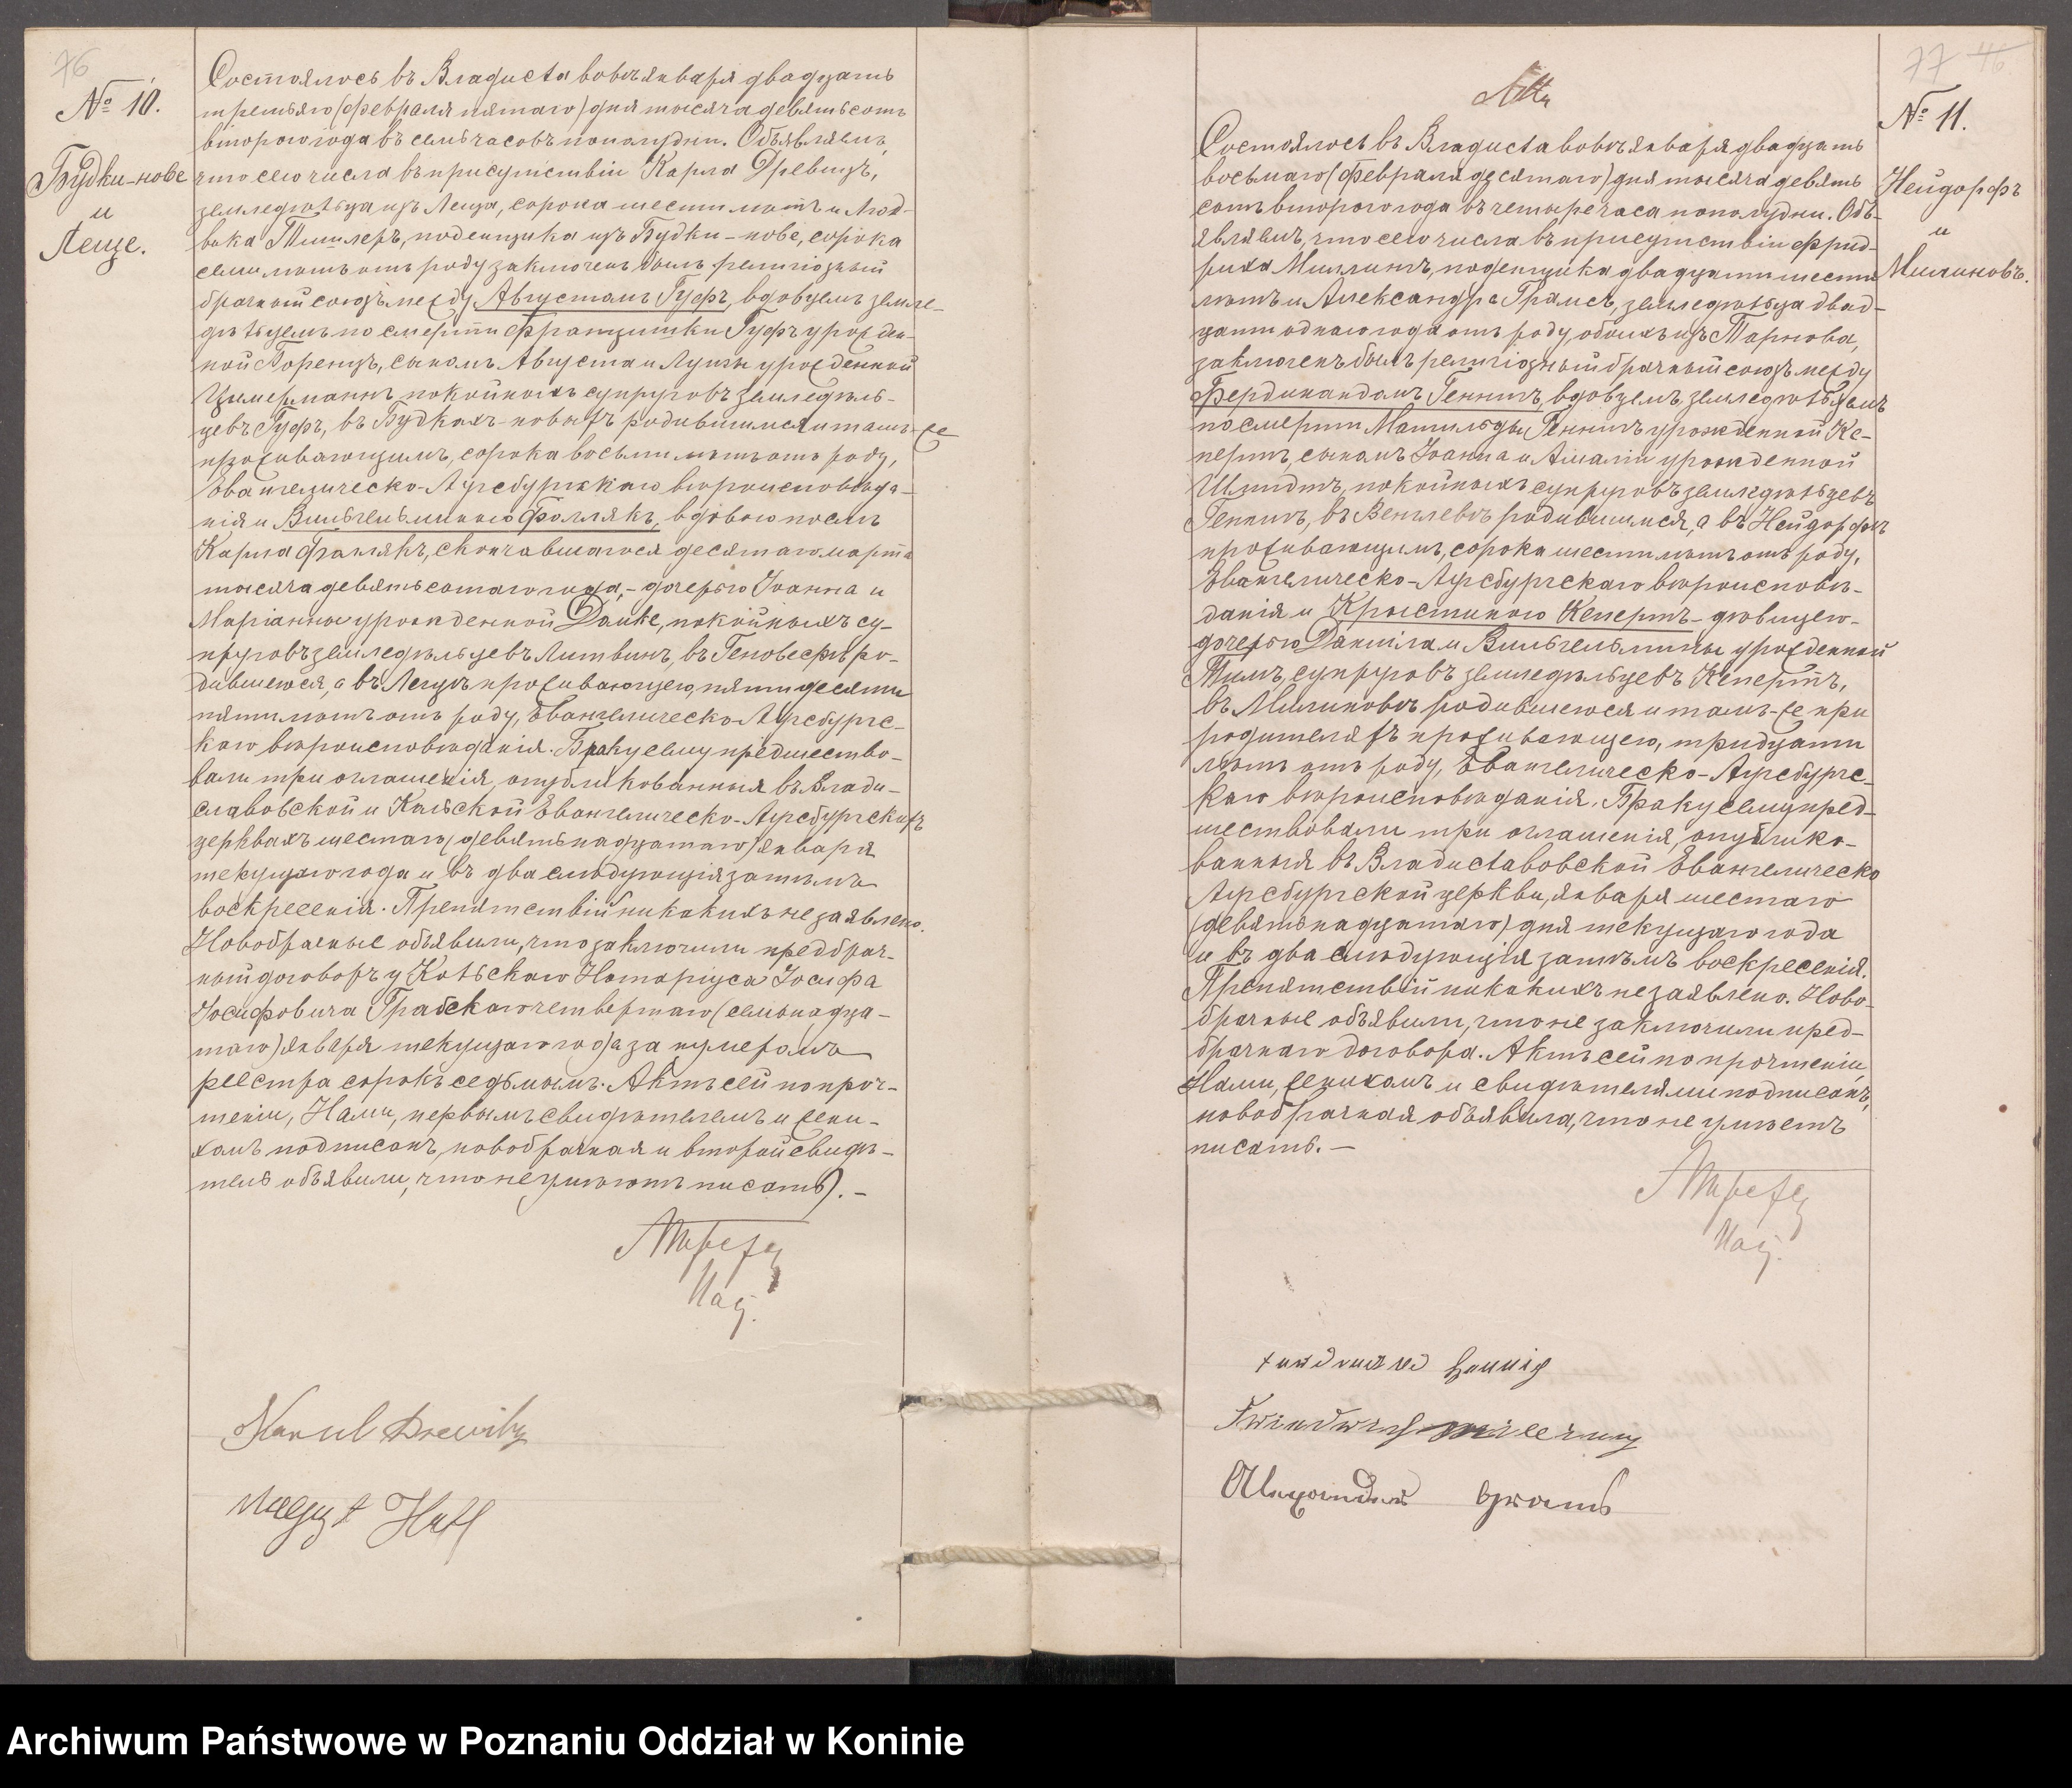 76
№ 10.
Будки-нове
и
Леще.
Состоялось въ Владиславовѣ января двадцать
третьяго (февраля пятаго) дня тысяча девятьсотъ
второго года въ семь часовъ пополудни. Объявляемъ,
что сего числа въ присутствіи Карла Древицъ,
земледѣльца изъ Леща, сорока шести лѣтъ и Люд-
вика Тишлеръ, поденщика изъ Будки-нове, сорока
семи лѣтъ отъ роду заключенъ былъ религіозный
брачный союзъ между Августомъ Гуфъ, вдовцемъ земле-
дѣльцемъ по смерти Францишки Гуфъ урожден-
ной Лоренцъ, сыномъ Августа и Луизы урожденной
Цимерманнъ покойныхъ супруговъ земледѣль-
цевъ Гуфъ, въ Будкахъ-новыхъ родившимся и тамъ-же
проживающимъ, сорока восьми лѣтъ отъ роду,
Евангелическо-Аугсбургскаго вѣроисповѣда-
нія и Вильгельминою Фаллякъ, вдовою послѣ
Карла Фаллякъ, скончавшагося десятаго марта
тысяча девятьсотаго года,- дочерью Іоанна и
Маріанны урожденной Данке, покойныхъ су-
пруговъ земледѣльцевъ Литвинъ, въ Геновефѣ ро-
дившеюся, а въ Лещѣ проживающею, пятидесяти
пяти лѣтъ отъ роду, Евангелическо-Аугсбургс-
каго вѣроисповѣданія. Браку сему предшество-
вали три оглашенія, опубликованныя въ Влади-
славовской и Кольской Евангелическо-Аугсбургскихъ
церквахъ шестаго (девятьнадцатаго) января
текущаго года и въ два слѣдующія затѣмъ
воскресенія. Препятствій никакихъ не заявлено.
Новобрачные объявили, что заключили предбрач-
ный договоръ у Кольскаго Нотаріуса Іосифа
Іосифовича Грабскаго четвертаго (семьнадца-
таго) января текущаго года за нумеромъ
реестра сорокъ седьмымъ. Актъ сей по проч-
теніи, Нами, первымъ свидѣтелемъ и жени-
хомъ подписанъ, новобрачная и второй свидѣ-
тель объявили, что не умѣютъ писать). -
Karul Drewitz
August Huff
77 46
№ 11.
Нейдорфъ
и
Милиновъ.
Состоялось въ Владиславовѣ января двадцать
восьмаго (февраля десятаго) дня тысяча девять
сотъ второго года въ четыре часа пополудни. Объ-
являемъ, что сего числа въ присутствіи Фрид-
риха Миллингъ, поденщика двадцати шести
лѣтъ и Александра Грамсъ, земледѣльца двад-
цати одного года отъ роду, обоихъ изъ Тарнова,
заключенъ былъ религіозный брачный союзъ между
Фердинандомъ Геннигъ, вдовцемъ, земледѣльцемъ
по смерти Матильды Геннигъ урожденной Ке-
пертъ, сыномъ Іоанна и Амаліи урожденной
Шмидтъ, покойныхъ супруговъ земледѣльцевъ
Геннигъ, въ Венглевѣ родившимся, а въ Нейдорфѣ
проживающимъ, сорока шести лѣтъ отъ роду,
Евангелическо-Аугсбургскаго вѣроисповѣ-
данія и Крыстиною Кепертъ - дѣвицею-
дочерью Даніила и Вильгельмины урожденной
Тимъ, супруговъ земледѣльцевъ Кепертъ,
въ Милиновѣ родившеюся и тамъ-же при
родителяхъ проживающею, тридцати
лѣтъ отъ роду, Евангелическо-Аугсбургс-
каго вѣроисповѣданія. Браку сему пред-
шествовали три оглашенія, опублико-
ванныя въ Владиславовской Евангелическо
Аугсбургской церкви, января шестаго
(девятьнадцатаго) дня текущаго года
и въ два слѣдующія затѣмъ воскресенія.
Препятствій никакихъ не заявлено. Ново-
брачные объявили, что не заключили пред-
брачнаго договора. Актъ сей по прочтеніи,
Нами, женихомъ и свидѣтелями подписанъ,
новобрачная объявила, что не умѣетъ
писать. -
Hennig
Alexander Grams
Archiwum Państwowe w Poznaniu Oddział w Koninie